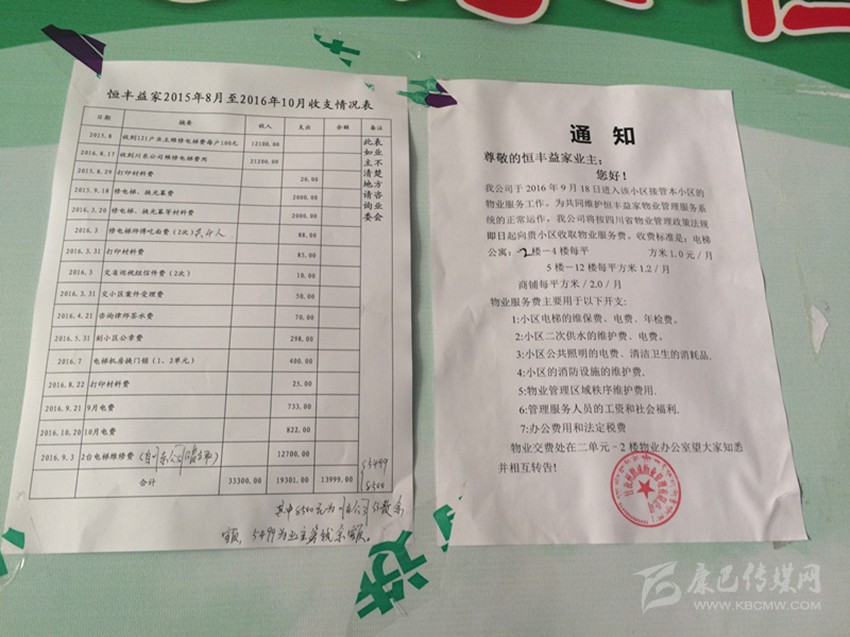 恒丰益家2015年8月至2016年10月收支情况表
日期 摘要 收入 支出 余额 备注
2015.8 收到121户业主维修电梯费每户100元 12100.00
2016.8.17 收到川东公司维修电梯费用 21200.00
2015.8.29 打印材料费 20.00
2015.9.18 修电梯、换光幕费 2000.00
2016.3.20 修电梯、换光幕等材料费 2000.00
2016.3 修电梯师傅吃面费(2次) 88.00
2016.3.31 打印材料费 85.00
2016.3 交省巡视组信件费(2次) 10.00
2016.3.31 交小区案件受理费 50.00
2016.4.21 咨询律师茶水费 70.00
2016.5.31 刻小区公章费 298.00
2016.7 电梯机房换门锁(1、2单元) 400.00
2016.8.22 打印材料费 25.00
2016.9.21 9月电费 733.00
2016.10.20 10月电费 822.00
2016.9.3 2台电梯维修费 12700.00
合计 33300.00 19301.00 13999.00
此表如业主不清楚地方请咨询业委会
5499
8500
其中8500元为 公司 余
额，5499为业主 余额。
通 知
尊敬的恒丰益家业主：
您好！
我公司于2016年9月18日进入该小区接管本小区的
物业服务工作。为共同维护恒丰益家物业管理服务系
统的正常运作。我公司将按四川省物业管理政策法规
即日起向贵小区收取物业服务费。收费标准是：电梯
公寓：-2楼－4楼每平 方米1.0元/月
5楼－12楼每平方米1.2/月
商铺每平方米/2.0/月
物业服务费主要用于以下开支：
1:小区电梯的维保费、电费、年检费。
2:小区二次供水的维护费、电费。
3:小区公共照明的电费、清洁卫生的消耗品.
4:小区的消防设施的维护费.
5:物业管理区域秩序维护费用.
6:管理服务人员的工资和社会福利.
7:办公费用和法定税费
物业交费处在二单元－2楼物业办公室望大家知悉
并相互转告!
康巴传媒网
WWW.KBCMW.COM